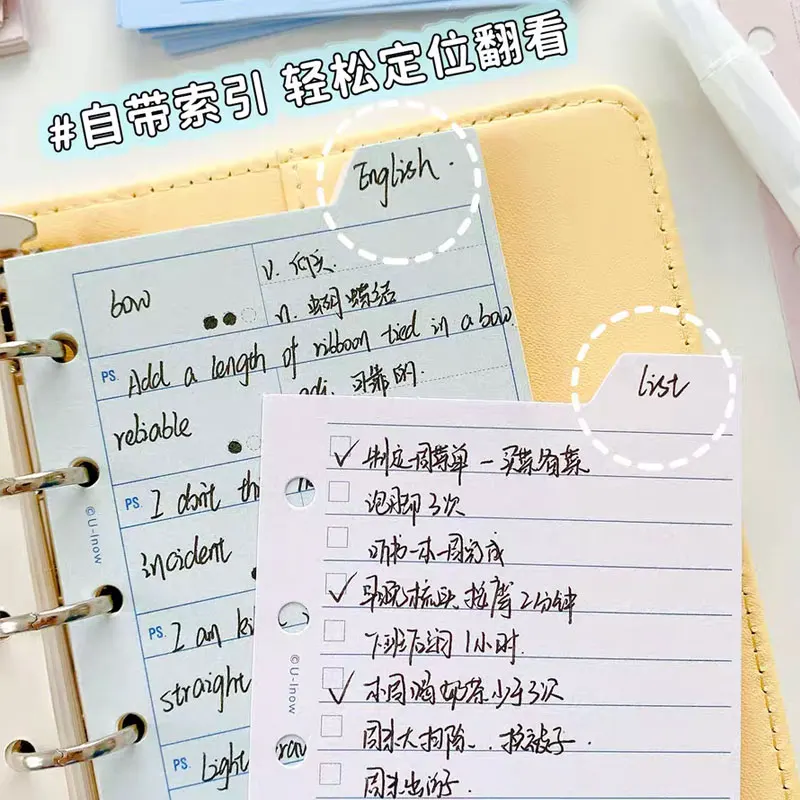 #自带索引 轻松定位翻看
English.
bow
v. 低头
n. 蝴蝶结
PS. Add a length of ribbon tied in a bow.
reliable
adj. 可靠的.
PS. I don't th
incident
PS. I am ki
straight
PS. Light
©U-Inow
list
制定一周菜单－买菜备菜
泡脚3次
听书一本一周完成
早晚梳头按摩2分钟
下班后 1小时.
本周喝奶茶少于3次
周末大扫除..换被子.
周末出门.
©U-Inow